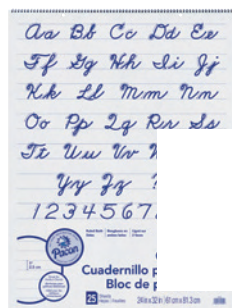 Aa Bb Cc Dd Ee
Ff Gg Hh Ii Jj
Kk Ll Mm Nn
Oo Pp Qq Rr Ss
Tt Uu Vv
Yy Zz ?
1234567
Pacon
Cuadernillo p
Bloc de p
25
24in x 32in | 61cm x 81.3cm